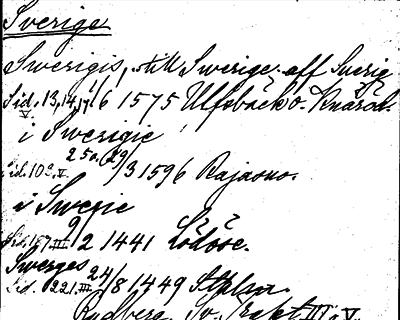 Sverige
Swerigis, till Swerige, aff Sverig
Sid. 13, 14, 17. 16 1575 Ulfsbäck o. Knäröd.
V.
i Swerigie
25 a. (29/3 1596 Rajasuo.
Sid. 103. V.
i Swerie
Sid. 157. III. 9/2 1441 Lödöse.
Swerges
Sid. 221. III. 24/8 1449 Sthlm.
Rydberg, Sv. Trakt. III o. V.